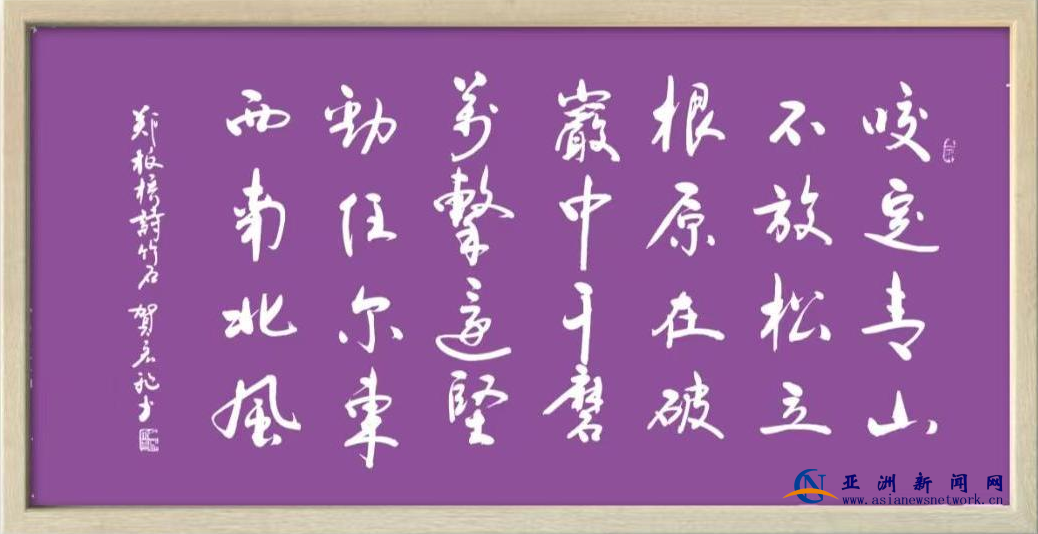 咬定青山
不放松立
根原在破
巖中千磨
萬擊還堅
勁任尔東
西南北風
郑板橋詩竹石 賀 书
亚洲新闻网
www.asianewsnetwork.cn